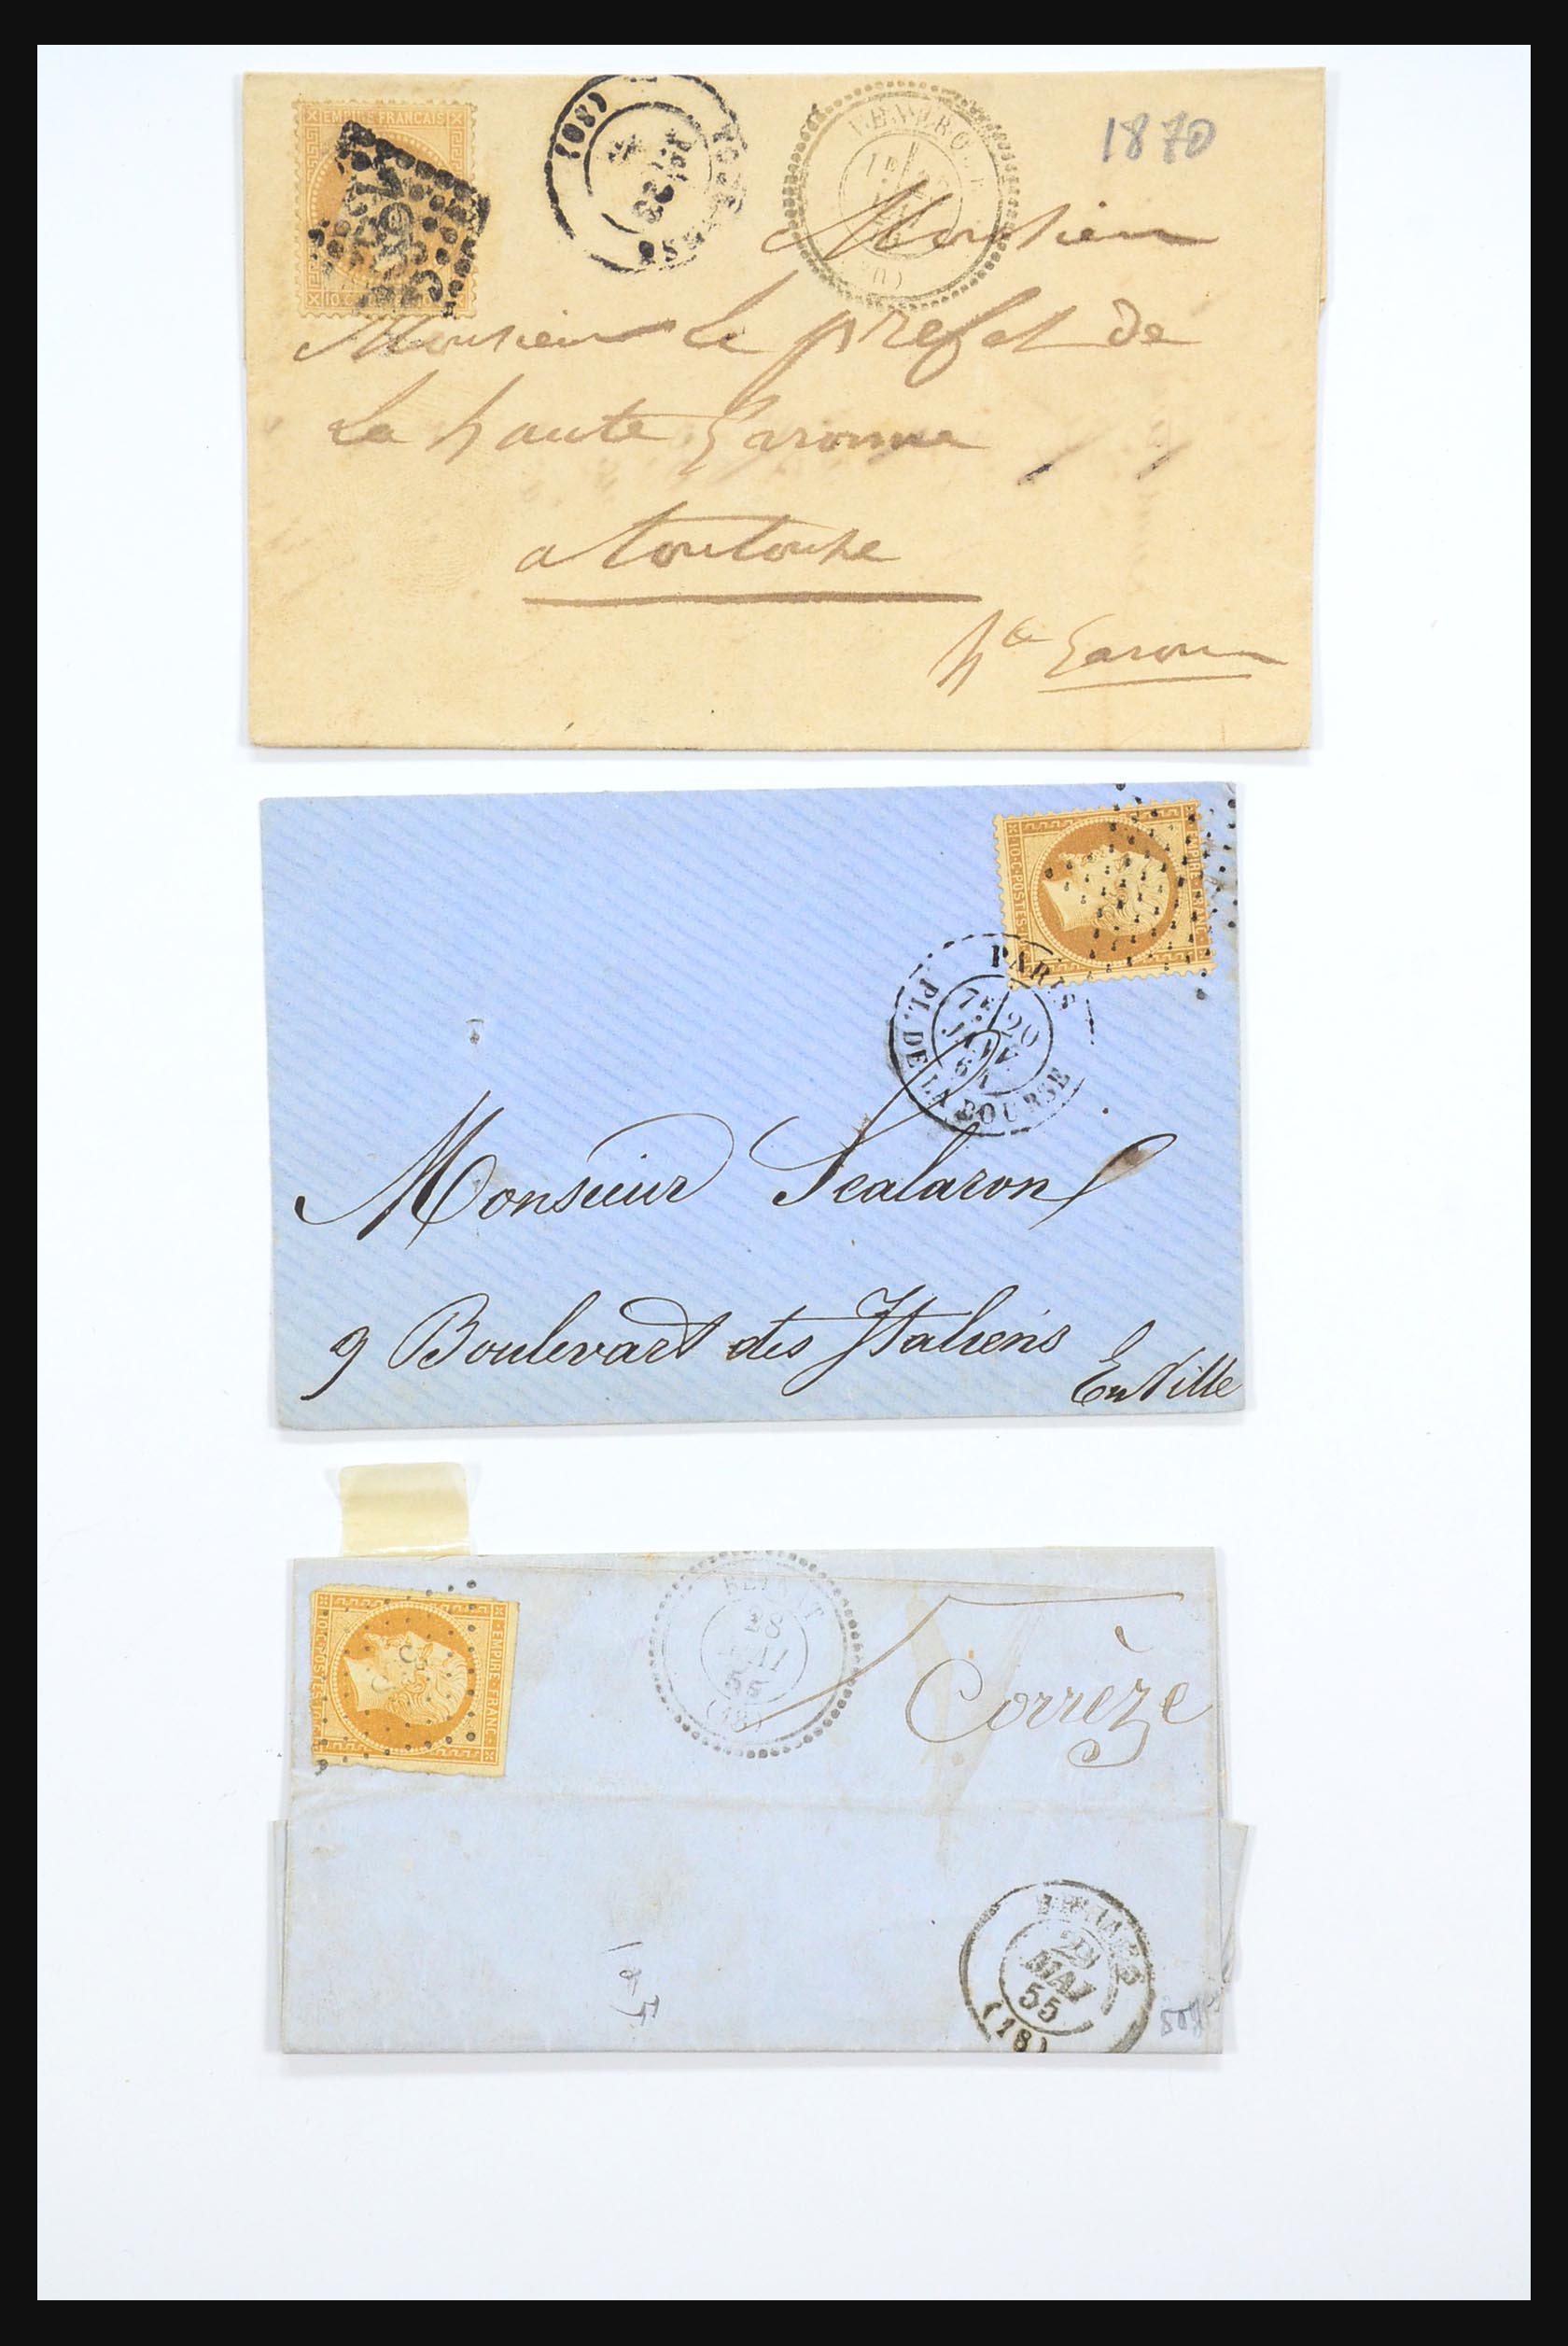 EMPIRE FRANÇAIS
(80)
1870
Monsieur
Monsieur le prefet de
La haute Garonne
a toulouse
hte Garonne
EMPIRE · FRANC ·
10 · C · POSTES · 10 · C
PARIS
7E
20
JANV
64
PL. DE LA BOURSE
Monsieur Scalaron
9 Boulevart des Italiens
En Ville
EMPIRE · FRANC ·
10 · C · POSTES · 10 · C
28
55
(18)
Corrèze
29
MAI
55
(18)